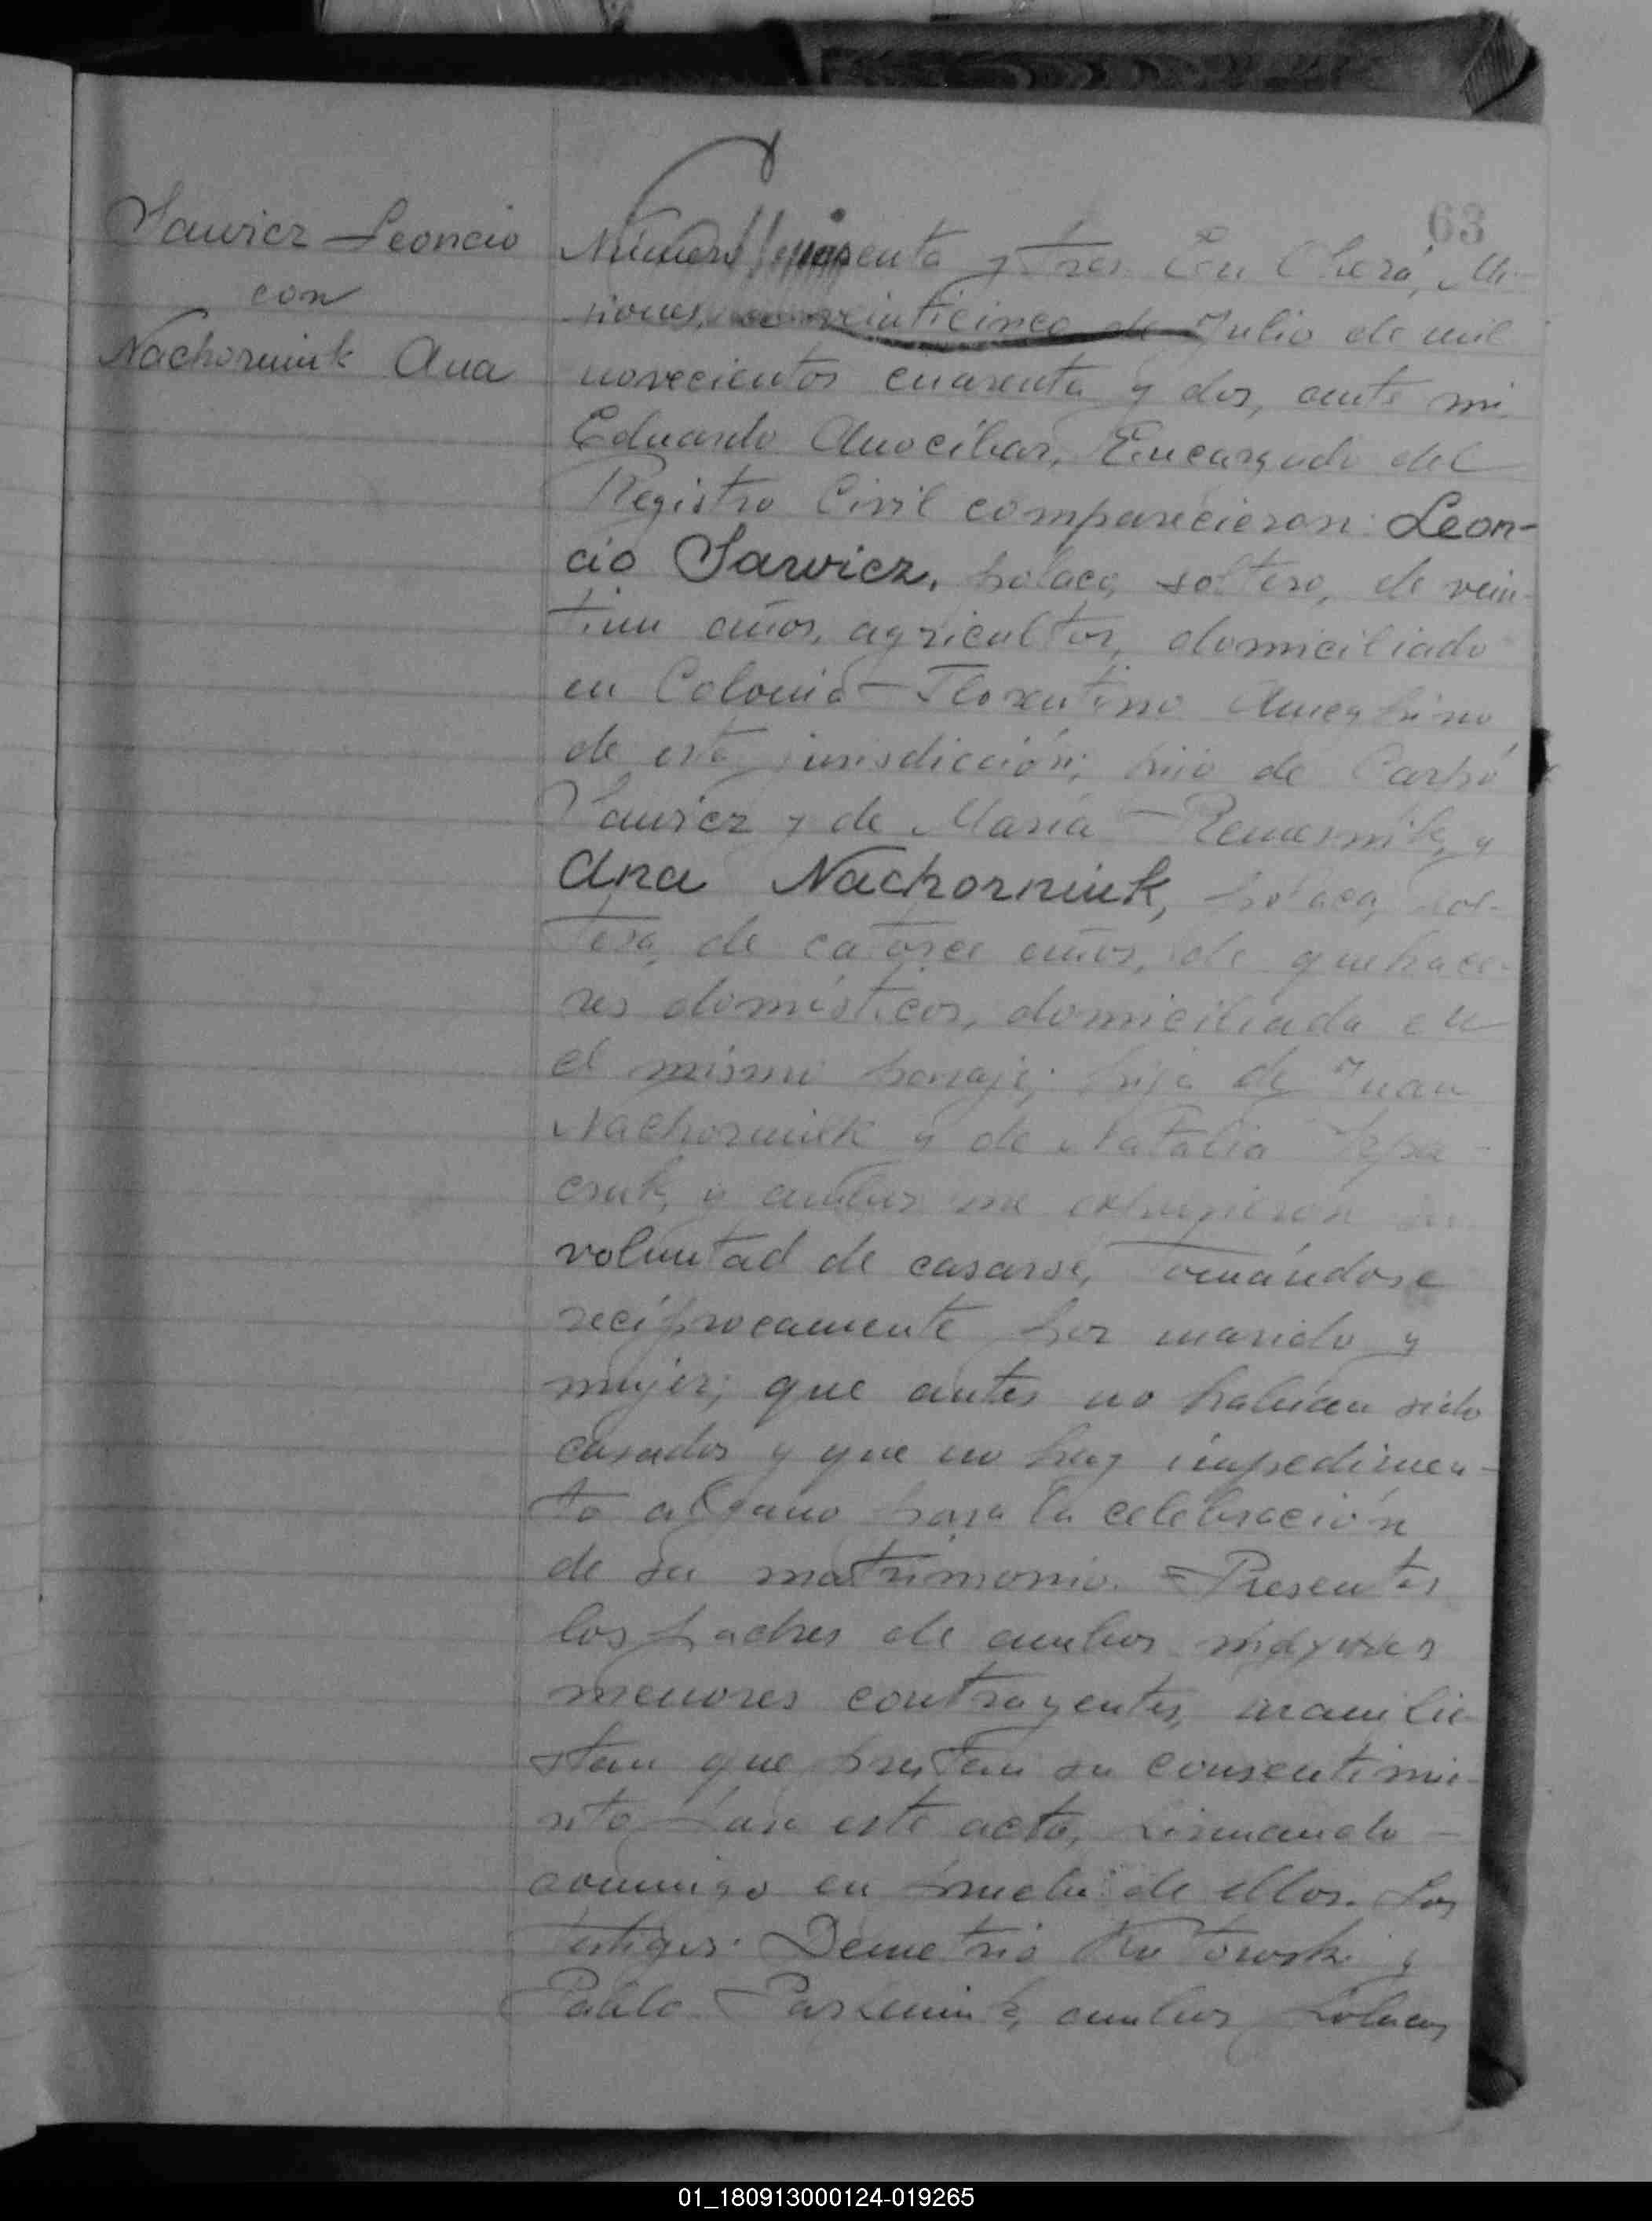 63
Sawicz Leoncio
con
Nachorniuk Ana
Número sesenta y tres En Cherá, Mi-
siones, veinticinco de Julio de mil
novecientos cuarenta y dos, ante mi
Eduardo Anocíbar, Encargado del
Registro Civil comparecieron: Leon-
cio Sawicz, polaco, soltero, de vein-
tiun años, agricultor, domiciliado
en Colonia Florentino Ameghino
de esta jurisdicción; hijo de Carpó
Sawicz y de María y
Ana Nachorniuk, polaca, sol-
tera, de catorce años, de quehace-
res domésticos, domiciliada en
el mismo paraje; hija de Juan
Nachorniuk y de Natalia
y ambos me expresaron su
voluntad de casarse, tomándose
recíprocamente por marido y
mujer; que antes no habían sido
casados y que no hay impedimen-
to alguno para la celebración
de su matrimonio. = Presentes
los padres de ambos
menores contrayentes, manifie-
stan que prestan su consentimie-
nto para este acto, firmando
conmigo en prueba de ellos. Los
testigos: Demetrio y
Pablo ambos polacos,
01_180913000124-019265